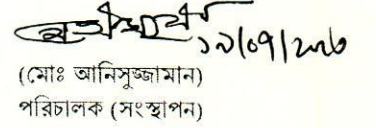 ১৯/০৭/২০২৩
(মোঃ আনিসুজ্জামান)
পরিচালক (সংস্থাপন)